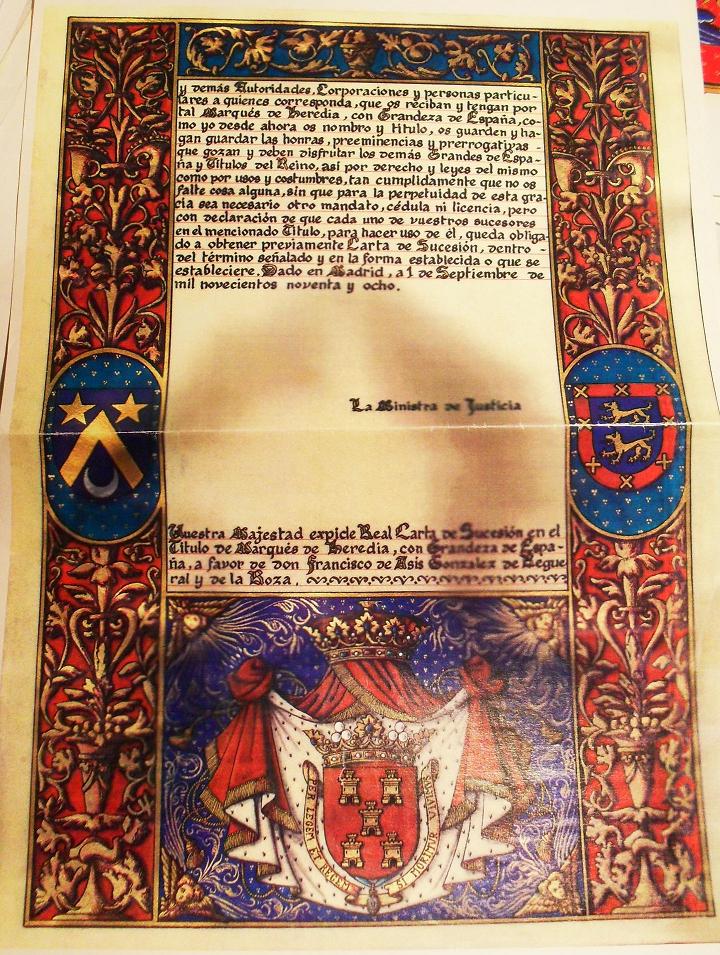 y demás Autoridades, Corporaciones y personas particu-
lares a quienes corresponda, que os reciban y tengan por
tal Marqués de Heredia, con Grandeza de España, co-
mo yo desde ahora os nombro y titulo, os guarden y ha-
gan guardar las honras, preeminencias y prerrogativas
que gozan y deben disfrutar los demás Grandes de Espa-
ña y Títulos del Reino, así por derecho y leyes del mismo
como por usos y costumbres, tan cumplidamente que no os
falte cosa alguna, sin que para la perpetuidad de esta gra-
cia sea necesario otro mandato, cédula ni licencia, pero
con declaración de que cada uno de vuestros sucesores
en el mencionado Título, para hacer uso de él, queda obliga-
do a obtener previamente Carta de Sucesión, dentro
del término señalado y en la forma establecida o que se
estableciere. Dado en Madrid, a 1 de Septiembre de
mil novecientos noventa y ocho.
La Ministra de Justicia
Vuestra Majestad expide Real Carta de Sucesión en el
Título de Marqués de Heredia, con Grandeza de Espa-
ña, a favor de don Francisco de Asis Gonzalez de Regue
ral y de la Roza,
LEGEM ET REGEM
SI MORIMUR